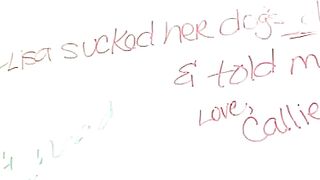 Lisa sucked her dogs
& told m
Love,
Callie